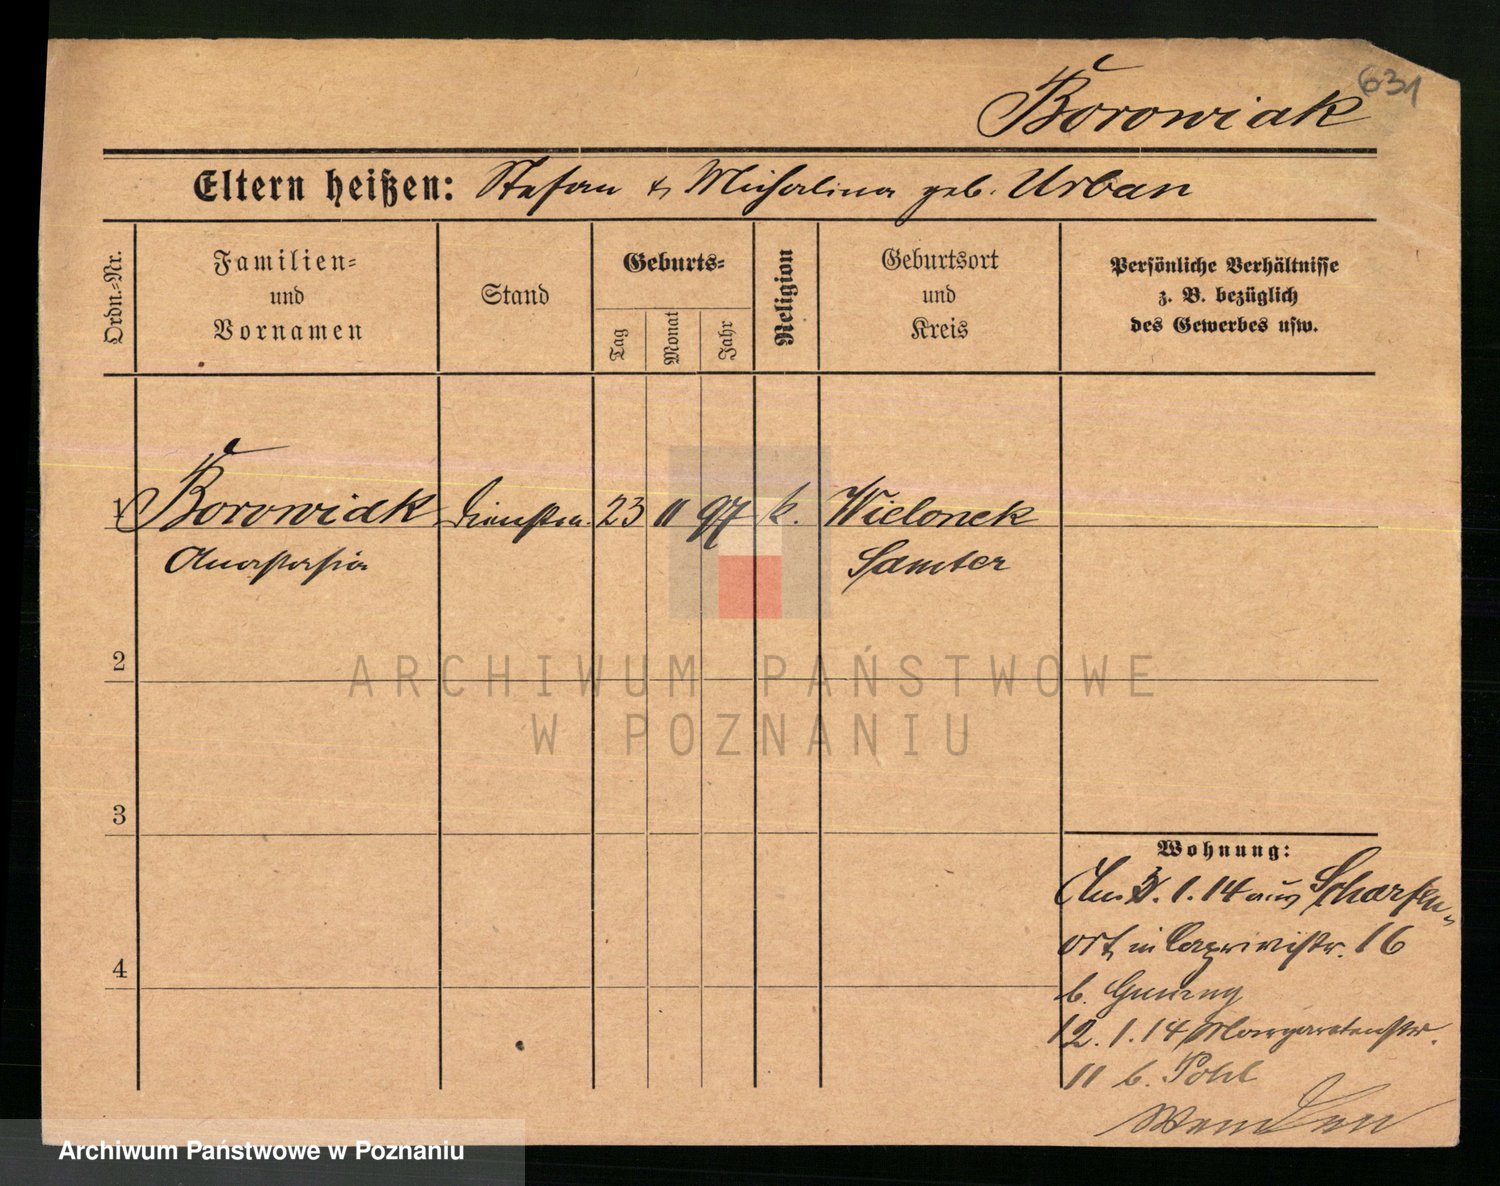 631
Borowiak
Eltern heißen: Stefan & Michalina geb. Urban
Ordn.-Nr.
Familien- und Vornamen
Stand
Geburts-
Tag
Monat
Jahr
Religion
Geburtsort und Kreis
Persönliche Verhältnisse
z. B. bezüglich
des Gewerbes usw.
1 Borowiak 23 11 97 k. Wielonek
Anastasia Samter
2
ARCHIWUM PAŃSTWOWE
W POZNANIU
3
Wohnung:
Am 3. 1. 14 aus Scharfen-
ort in Caprivistr. 16
b.
12. 1. 14 Margaretenstr.
11 b. Pohl
4
Archiwum Państwowe w Poznaniu